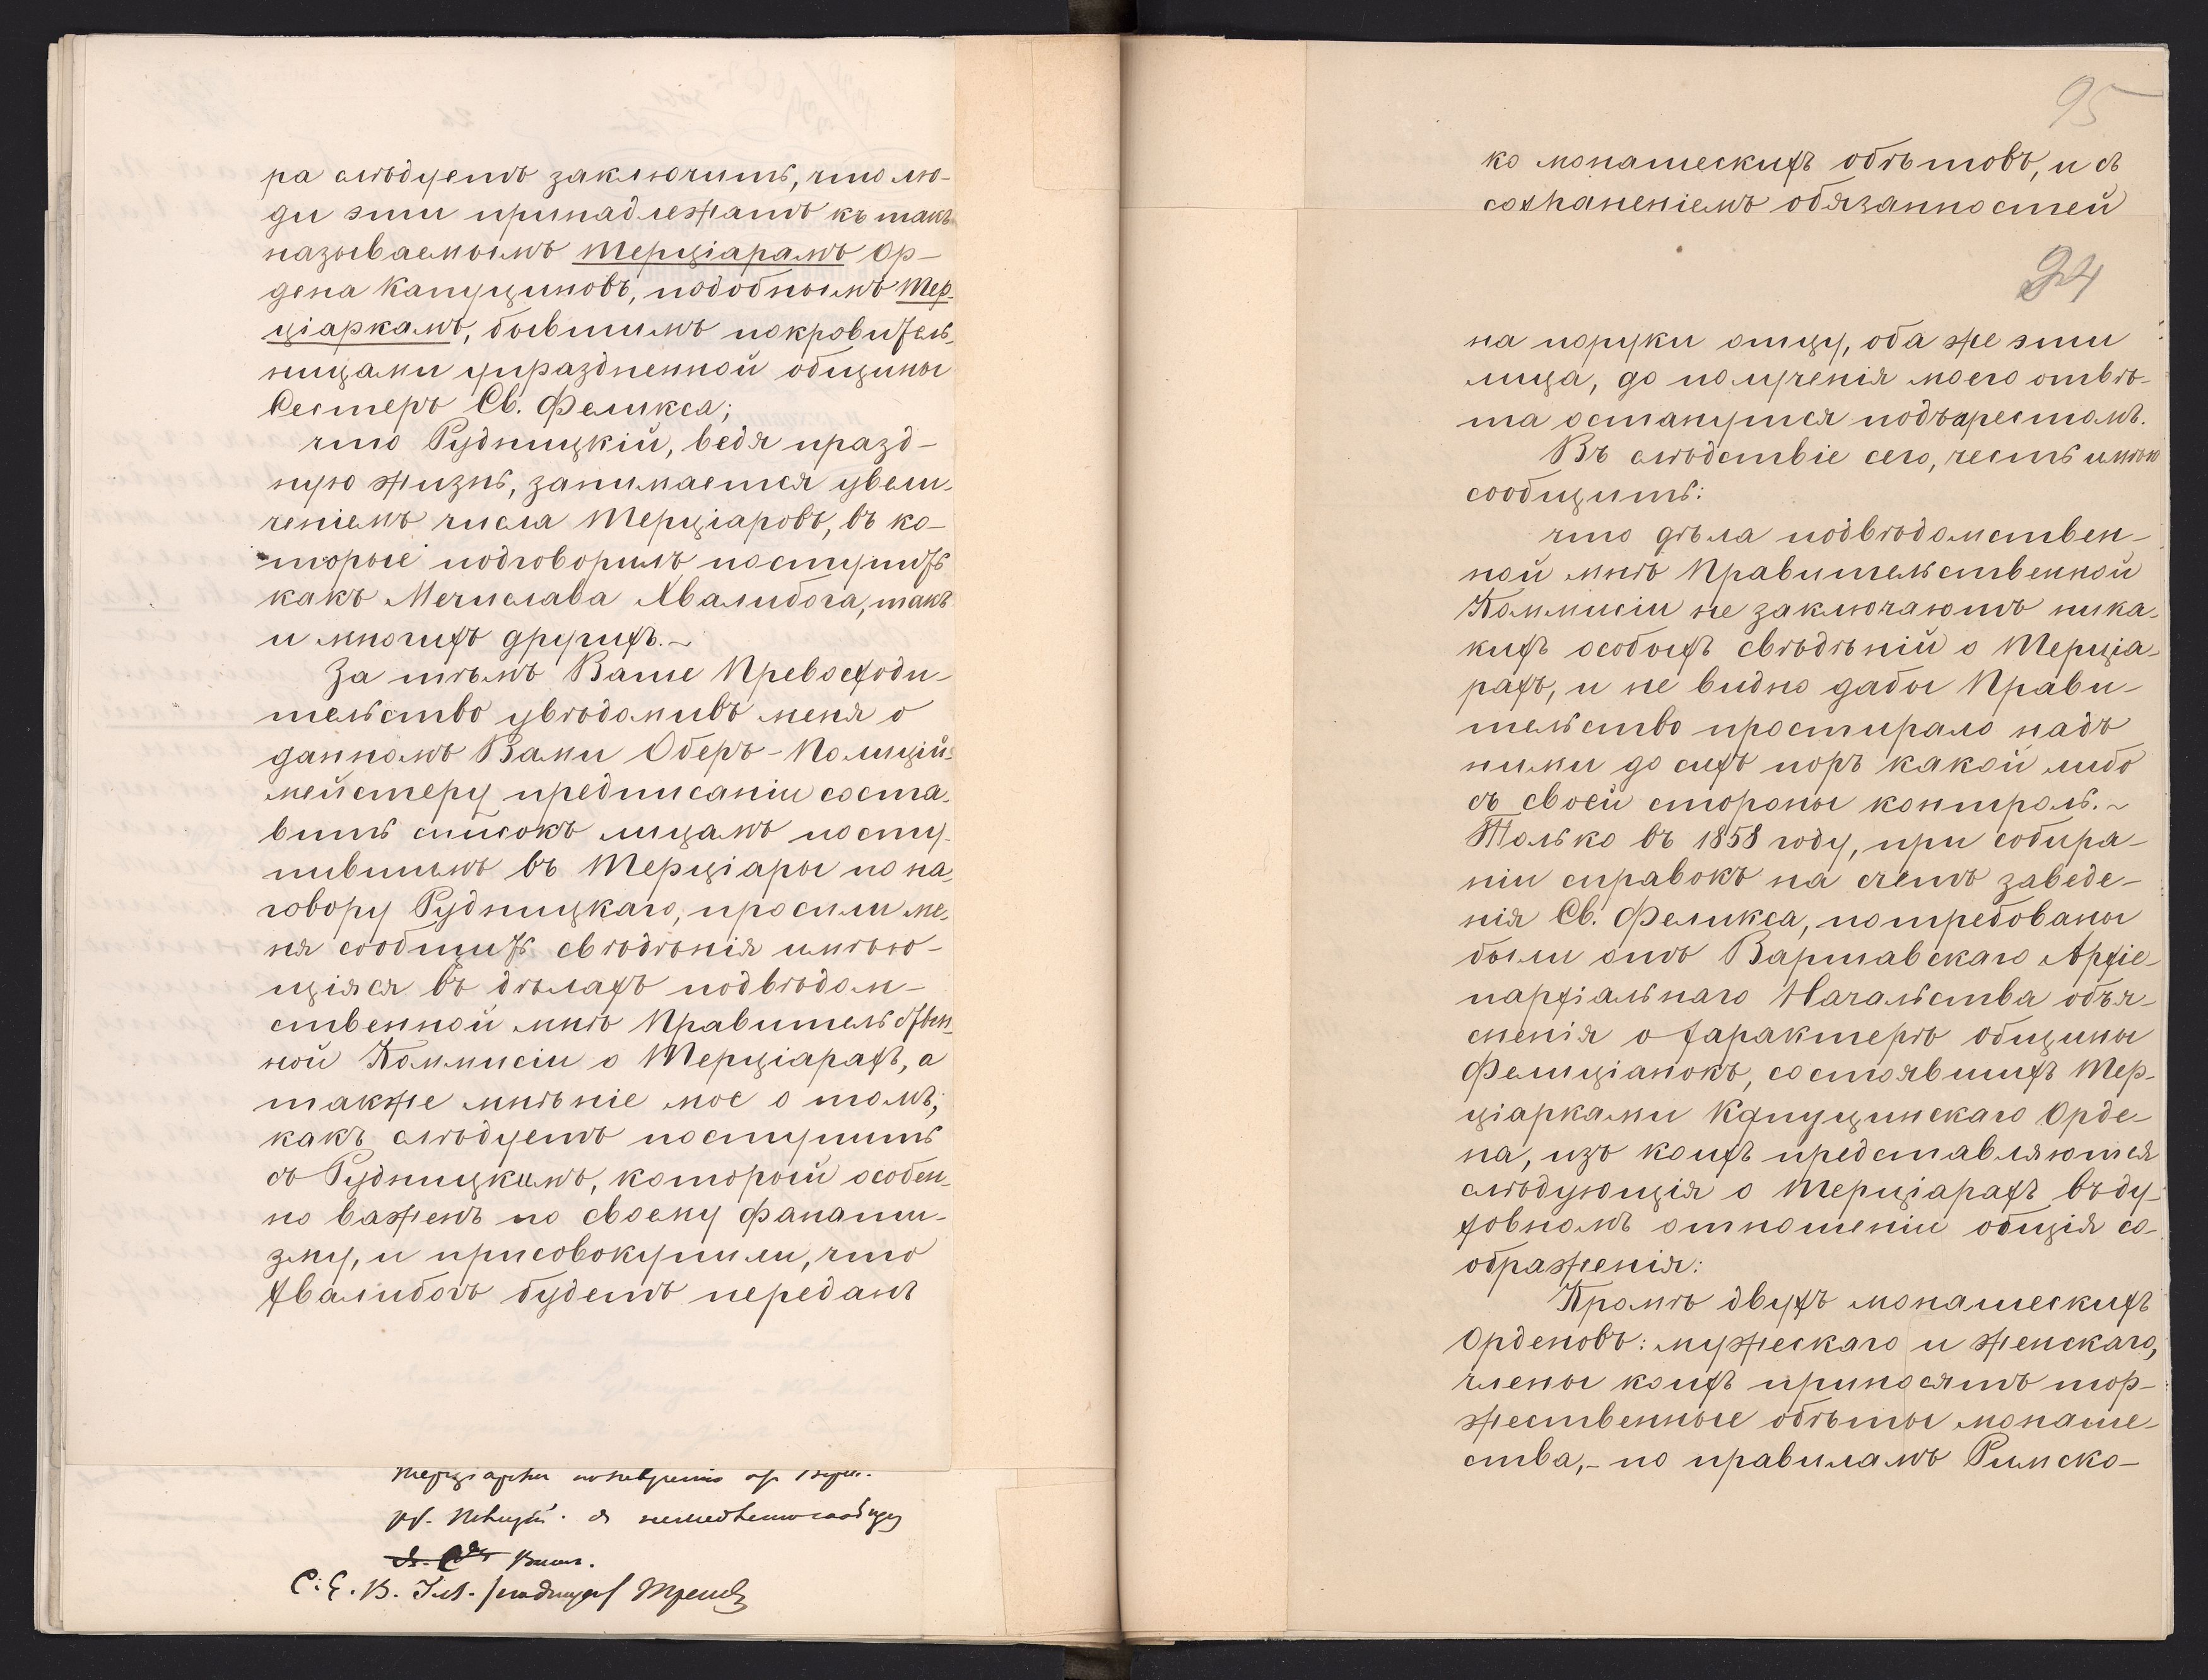 ра слѣдуетъ заключить, что лю-
ди эти принадлежатъ къ такъ
называемымъ Терціарамъ Ор-
дена Капуциновъ, подобнымъ Тер-
ціаркамъ, бывшимъ покровитель-
ницами упраздненной общины
Сестеръ Св. Феликса;
что Рудницкій, ведя празд-
ную жизнь, занимается увели-
ченіемъ числа Терціаровъ, въ ко-
торые подговорилъ поступить
какъ Мечислава Хвалибога, такъ
и многихъ другихъ.
За тѣмъ Ваше Превосходи-
тельство увѣдомивъ меня о
данномъ Вами Оберъ-Полицій-
мейстеру предписаніи соста-
вить списокъ лицамъ посту-
пившимъ въ Терціары по на-
говору Рудницкаго, просили ме-
ня сообщить свѣдѣнія имѣю-
щіяся въ дѣлахъ подвѣдом-
ственной мнѣ Правительствен-
ной Коммисіи о Терціарахъ, а
также мнѣніе мое о томъ,
какъ слѣдуетъ поступить
съ Рудницкимъ, который особен-
но важенъ по своему фанати-
зму, и присовокупили, что
Хвалибогъ будетъ переданъ
С. Е. В.
95
ко монашескихъ обѣтовъ, и съ
сохраненіемъ обязанностей
24
на поруки отцу, оба же эти
лица, до полученія моего отвѣ-
та останутся подъ арестомъ.
Въ слѣдствіе сего, честь имѣю
сообщить:
что дѣла подвѣдомствен-
ной мнѣ Правительственной
Коммисіи не заключаютъ ника-
кихъ особыхъ свѣдѣній о Терціа-
рахъ, и не видно дабы Прави-
тельство простирало надъ
ними до сихъ поръ какой либо
съ своей стороны контроль.
Только въ 1858 году, при собира-
ніи справокъ на счетъ заведе-
нія Св. Феликса, потребованы
были отъ Варшавскаго Архіе-
пархіальнаго Начальства объя-
сненія о характерѣ общины
Фелиціанокъ, состоявшихъ Тер-
ціарками Капуцинскаго Орде-
на, изъ коихъ представляются
слѣдующія о Терціарахъ въ ду-
ховномъ отношеніи общія со-
ображенія:
Кромѣ двухъ монашескихъ
Орденовъ: мужескаго и женскаго,
члены коихъ приносятъ тор-
жественные обѣты монаше-
ства,- по правиламъ Римско-